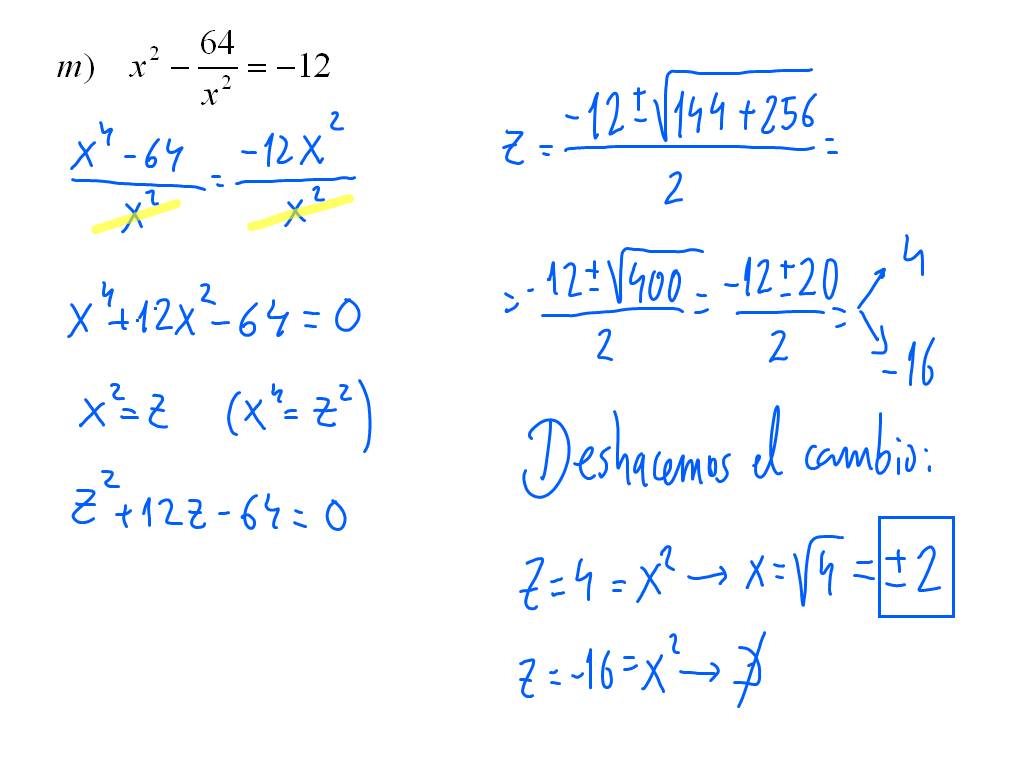 m) x² − 64/x² = −12
x⁴ − 64/x² = −12x²/x²
x⁴ + 12x² − 64 = 0
x² = z (x⁴ = z²)
z² + 12z − 64 = 0
z = −12 ± √144 + 256/2 =
= −12 ± √400/2 = −12 ± 20/2 = 4
−16
Deshacemos el cambio:
z = 4 = x² → x = √4 = ± 2
z = −16 = x² → ∄